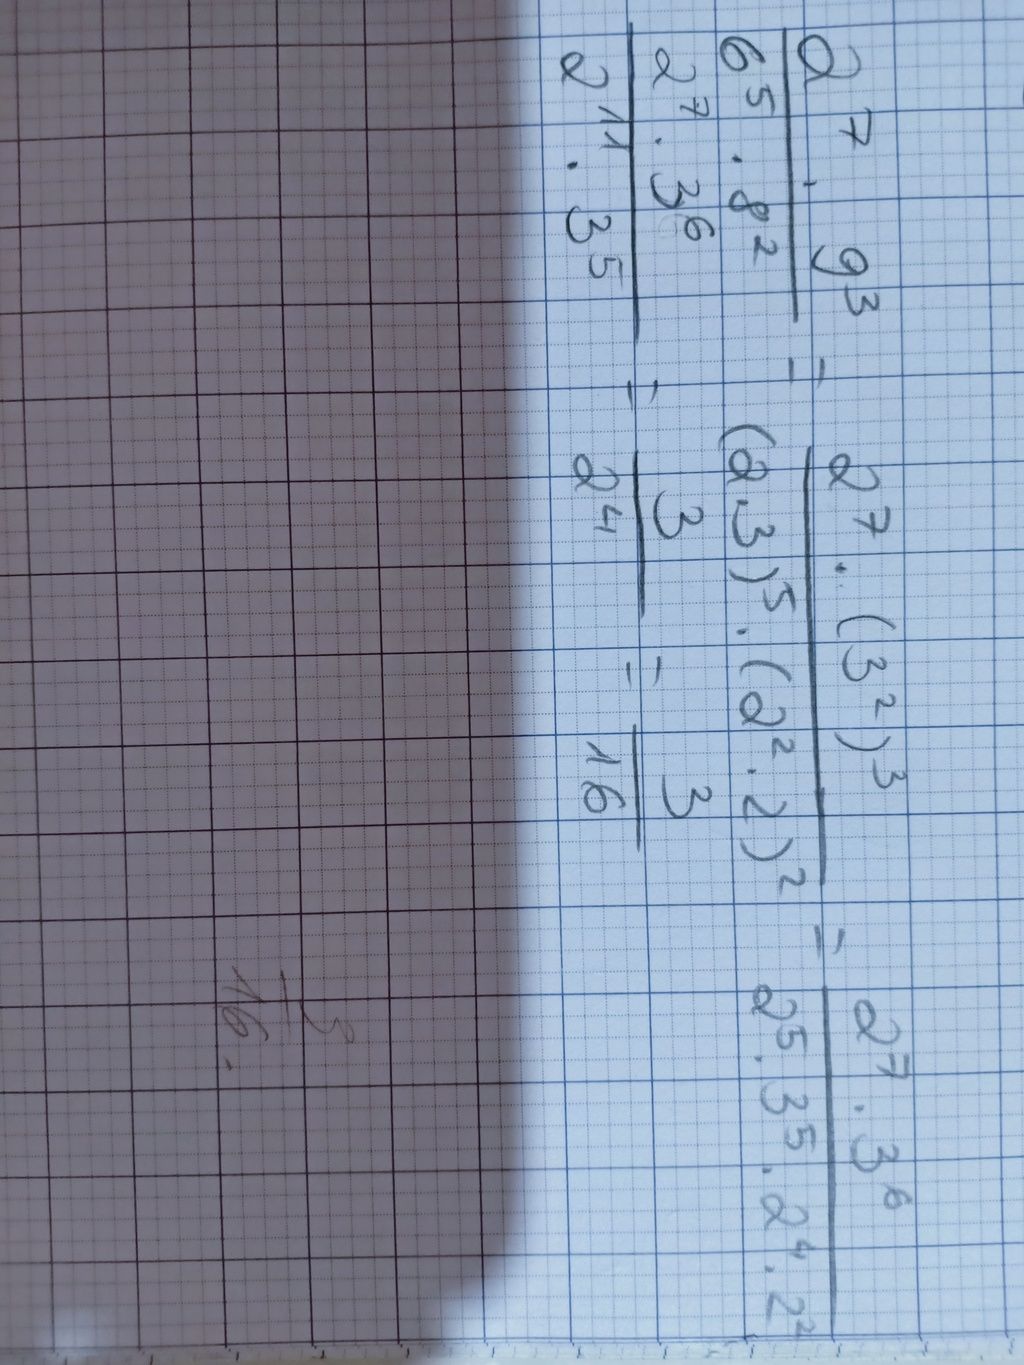 2⁷ . 9³ / 6⁵ . 8² = 2⁷ . (3²)³ / (2.3)⁵ . (2² . 2)² = 2⁷ . 3⁶ / 2⁵ . 3⁵ . 2⁴ . 2²
2⁷ . 3⁶ / 2¹¹ . 3⁵ = 3 / 2⁴ = 3 / 16
3 / 16 .